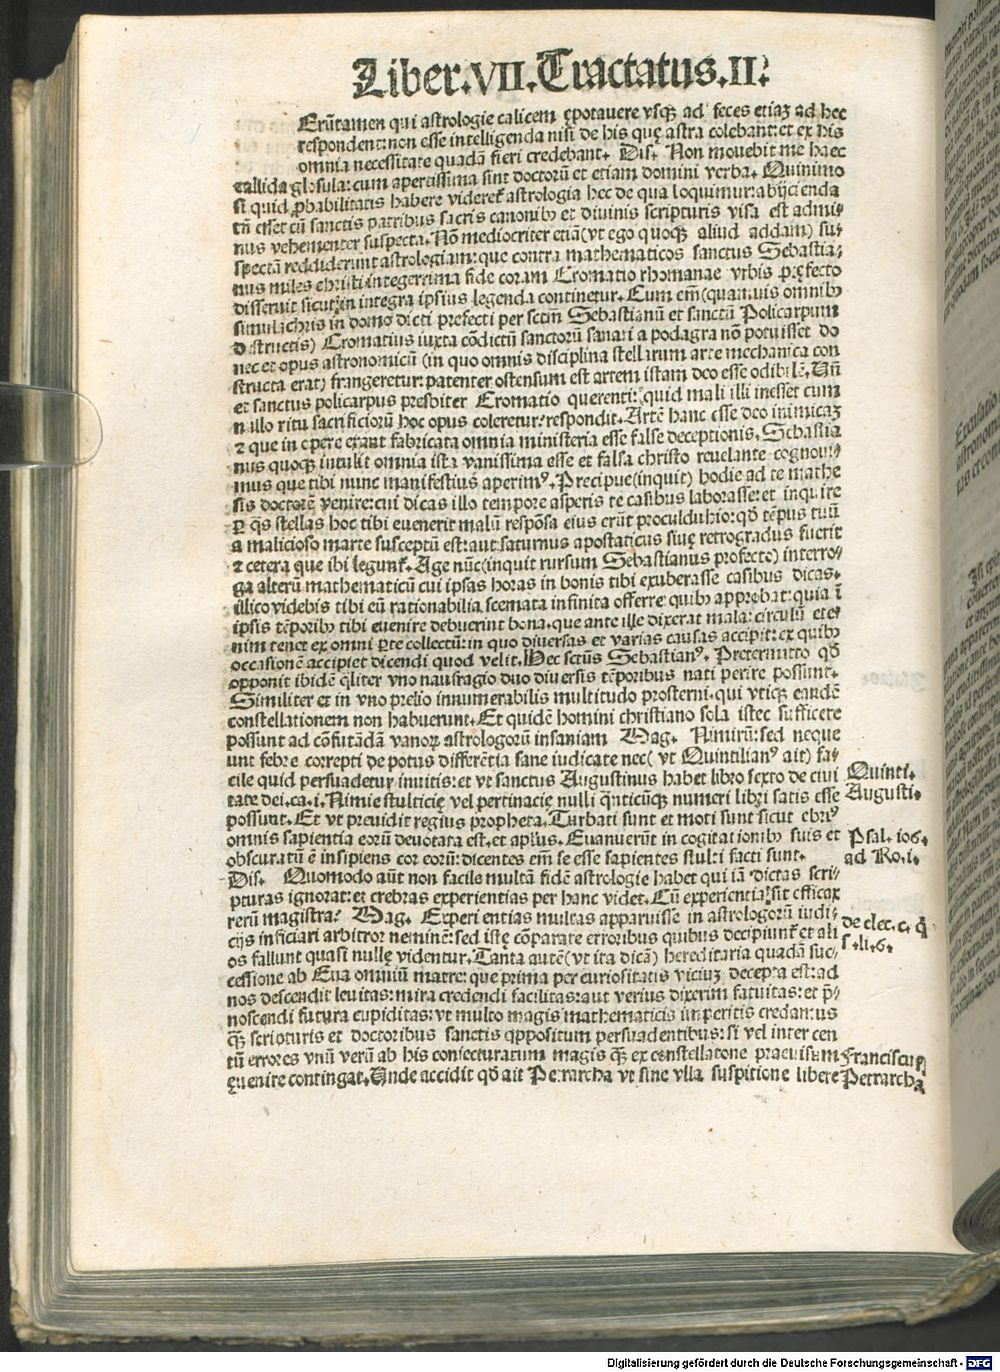 Liber.VII.Tractatus.II.
Erũtamen qui astrologie calicem epotauere vsqꝫ ad feces etiaꝫ ad hec
respondent: non esse intelligenda nisi de his quę astra colebant: et ex his
omnia necessitate quadã fieri credebant. Dis. Non mouebit me haec
callida glosula: cum apertissima sint doctorũ et etiam domini verba. Quinimo
si quid ꝓbabilitatis habere videret᷑ astrologia hec de qua loquimur: abijcienda
tñ esset cũ sanctis patribus sacris canonibꝫ et diuinis scripturis visa est admi⸗
nus vehementer suspecta. Nõ mediocriter etiã (vt ego quoqꝫ aliud addam) su⸗
spectã reddiderunt astrologiam: que contra mathematicos sanctus Sebastia⸗
nus miles christi integerrima fide coram Cromatio rhomanae vrbis pręfecto
disseruit sicut in integra ipsius legenda continetur. Cum em̃ (quamuis omnibꝫ
simulachris in domo dicti prefecti per sctm̃ Sebastianũ et sanctũ Policarpum
destructis) Cromatius iuxta cõdictũ sanctorũ sanari a podagra nõ potuisset do
nec et opus astronomicũ (in quo omnis disciplina stellarum arte mechanica con
structa erat) frangeretur: patenter ostensum est artem istam deo esse odibilẽ. Vñ
et sanctus policarpus presbiter Cromatio querenti: quid mali illi inesset cum
nullo ritu sacrificiorũ hoc opus coleretur: respondit. Artẽ hanc esse deo inimicaꝫ
⁊ que in opere erant fabricata omnia ministeria esse false deceptionis. Sebastia
nus quoqꝫ intulit omnia ista vanissima esse et falsa christo reuelante cognoui⸗
mus que tibi nunc manifestius aperimꝰ. Precipue (inquit) hodie ad te mathe
sis doctorẽ venire: cui dicas illo tempore asperis te casibus laborasse: et inquire
ꝑ q̃s stellas hoc tibi euenerit malũ respõsa eius erũt proculdubio: qď tẽpus tuũ
a malicioso marte susceptũ est: aut saturnus apostaticus siuę retrogradus fuerit
⁊ cetera que ibi legunt᷑. Age nũc (inquit rursum Sebastianus profecto) interro⸗
ga alterũ mathematicũ cui ipsas horas in bonis tibi exuberasse casibus dicas.
illico videbis tibi eũ rationabilia scemata infinita offerre: quibꝫ approbat: quia ĩ
ipsis tẽporibꝫ tibi euenire debuerint bona. que ante ille dixerat mala: circulũ et e⸗
nim tenet ex omni ꝑte collectũ: in quo diuersas et varias causas accipit: ex quibꝫ
occasionẽ accipiet dicendi quod velit. Hec sctũs Sebastianꝰ. Pretermitto qď
opponit ibidẽ q̃liter vno naufragio duo diuersis tẽporibus nati perire possunt.
Similiter et in vno prelio innumerabilis multitudo prosterni. qui vtiqꝫ eandẽ
constellationem non habuerunt. Et quidẽ homini christiano sola istec sufficere
possunt ad cõfutãdã vanoꝝ astrologorũ insaniam Mag. Nimirũ: sed neque
unt febre correpti de potus differẽtia sane iudicate nec (vt Quintilianꝰ ait) fa⸗
cile quid persuadetur inuitis: et vt sanctus Augustinus habet libro sexto de ciui
tate dei. ca. i. Nimie stulticię vel pertinacię nulli q̃nticũqꝫ numeri libri satis esse
possunt. Et vt preuidit regius propheta. Turbati sunt et moti sunt sicut ebriꝰ
omnis sapientia eorũ deuorata est. et apl̃us. Euanuerũt in cogitationibꝫ suis et
obscuratũ ẽ insipiens cor eorũ: dicentes em̃ se esse sapientes stulti facti sunt.
Dis. Quomodo aũt non facile multã fidẽ astrologie habet qui iã dictas scri⸗
pturas ignorat: et crebras experientias per hanc videt. Cũ experientia sit efficax
rerũ magistra? Mag. Experientias multas apparuisse in astrologorũ iudi⸗
cijs inficiari arbitror neminẽ: sed istę cõparate erroribus quibus decipiunt᷑ et ali
os fallunt quasi nullę videntur. Tanta autẽ (vt ita dicã) hereditaria quadã suc⸗
cessione ab Eua omniũ matre: que prima per curiositatis viciuꝫ decepta est: ad
nos descendit leuitas: mira credendi facilitas: aut verius dixerim fatuitas: et p̃⸗
noscendi futura cupiditas: vt multo magis mathematicis imperitis credamus
qꝫ̃ scripturis et doctoribus sanctis oppositum persuadentibus: si vel inter cen
tũ errores vnũ verũ ab his coniecturatum magis qꝫ̃ ex constellatone praeuisum
euenire contingat. Unde accidit qď ait Petrarcha vt sine vlla suspitione libere
Quinti.
Augusti.
Psal. 106.
ad Ro. i.
de elec. c. q̃
s. li. 6.
Franciscus
Petrarcha
Digitalisierung gefördert durch die Deutsche Forschungsgemeinschaft - DFG